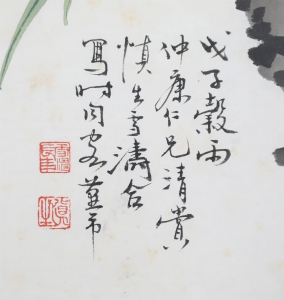 戊子穀雨
仲康仁兄清賞
慎生雪濤合
寫时同客蓳市